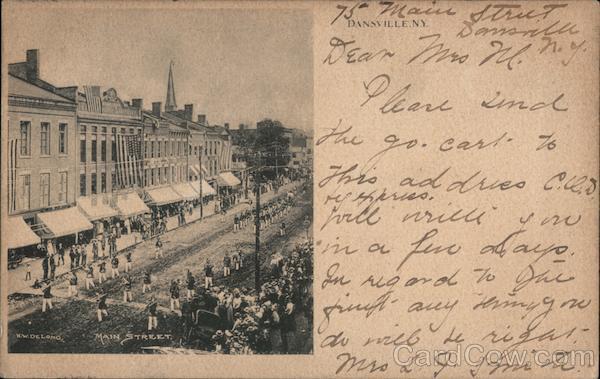 75 Main Street
DANSVILLE, N.Y.
Dansville
N. Y.
Dear Mrs M.
Please send
the go-cart to
this address C.O.D
by express.
Will write you
in a few days.
In regard to the
fruit any thing you
do will be right
Mrs L
H.W. DELONG.
MAIN STREET.
CardCow.com